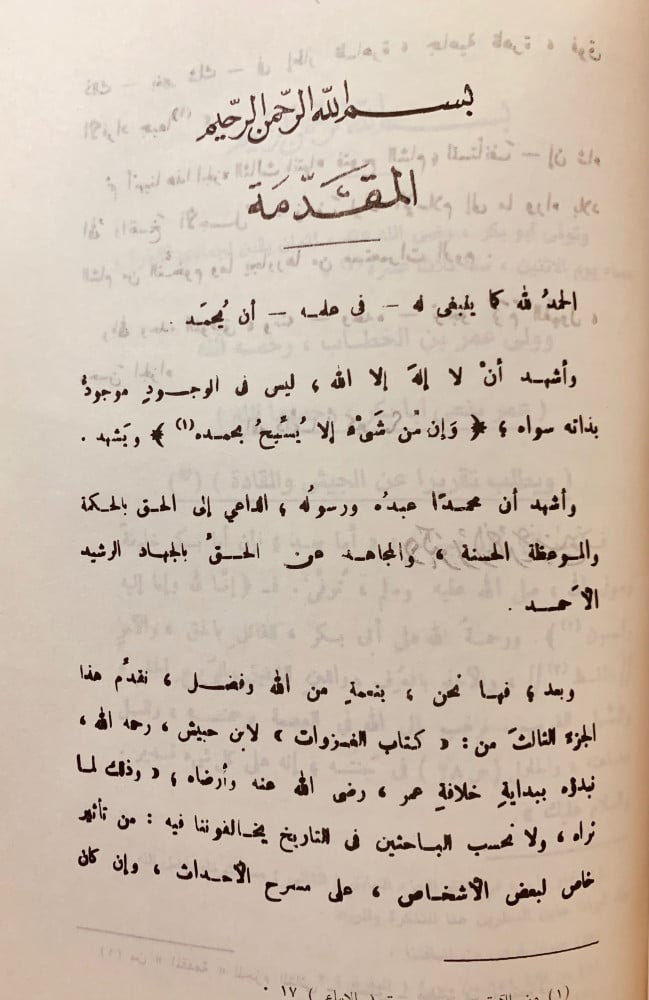 بسم الله الرحمن الرحيم
المقدمة
الحمدُ لله كما ينبغى له – فى علمه – أن يُحمَد .
وأشهد أنْ لا إلهَ إلا الله ، ليس فى الوجودِ موجودٌ
بذاته سواه ؛ ﴿ وَإن مّن شَىْء إلا يُسَبّحُ بحمده(١) ﴾ ويَشهد .
وأشهد أن محمدًا عبدُه ورسولُه ، الداعي إلى الحق بالحكمة
والموعظة الحسنة ، والمجاهد عن الحقّ بالجهاد الرشيد
الأحمد .
وبعد ؛ فها نحن ، بنعمةٍ من الله وفضل ، نقدّم هذا
الجزءَ الثالثَ من : « كتاب الغزوات » لابن حبيش ، رحمه الله ،
نبدؤه ببدايةِ خلافةِ عمر ، رضى الله عنه وأرضاه ؛ وذلك لما
نراه ، ولا نحسب الباحثين فى التاريخ يخالفوننا فيه : من تأثير
خاص لبعض الأشخاص ، على مسرح الأحداث ، وإن كان